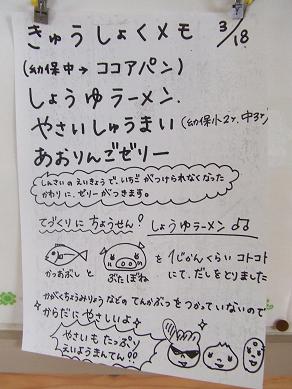 きゅうしょくメモ 3/18
(幼保中→ココアパン)
しょうゆラーメン.
やさいしゅうまい(幼保小2ヶ,中3ヶ)
あおりんごゼリー
しんさいのえいきょうで、いちごがつけられなくなった
かわりに、ゼリーがつきます。
てづくりにちょうせん! しょうゆラーメン♫
かつおぶしと ぶたぼね を1じかんくらいコトコト
にて、だしをとりました
かがくちょうみりょうなどのてんかぶつをつかっていないので
からだにやさしいよ
やさいもたっぷり
えいようまんてん!!